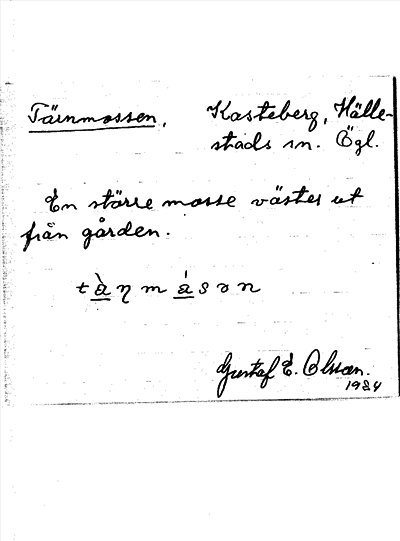 Tärnmossen, Kasteberg, Hälle-
stads sn. Ögl.
En större mosse väster ut
från gården.
tàŋmásɔn
Gustaf E. Olsson.
1984